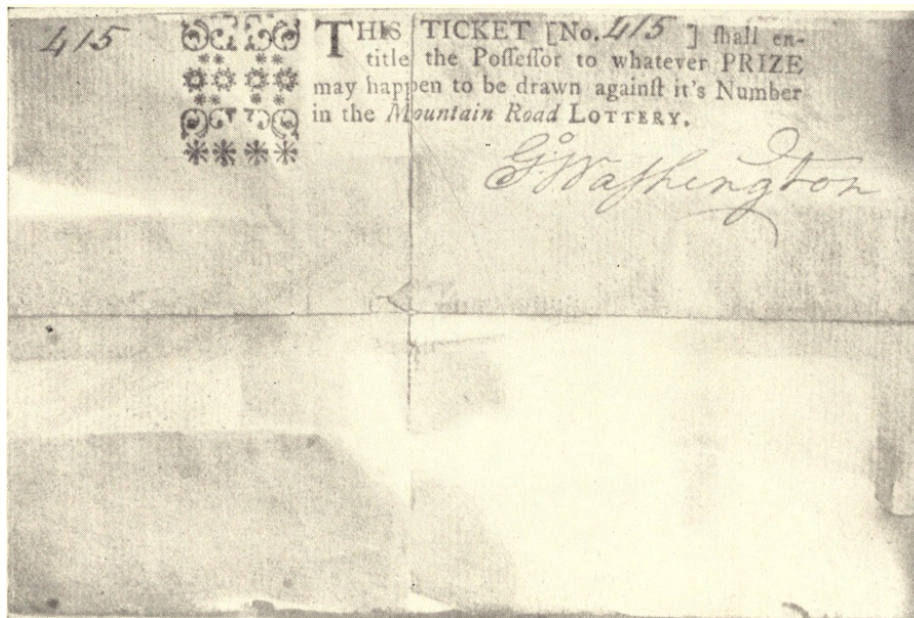 415
THIS TICKET [No. 415 ] ſhall en-
title the Poſſeſſor to whatever PRIZE
may happen to be drawn againſt it's Number
in the Mountain Road LOTTERY.
Go. Waſhington